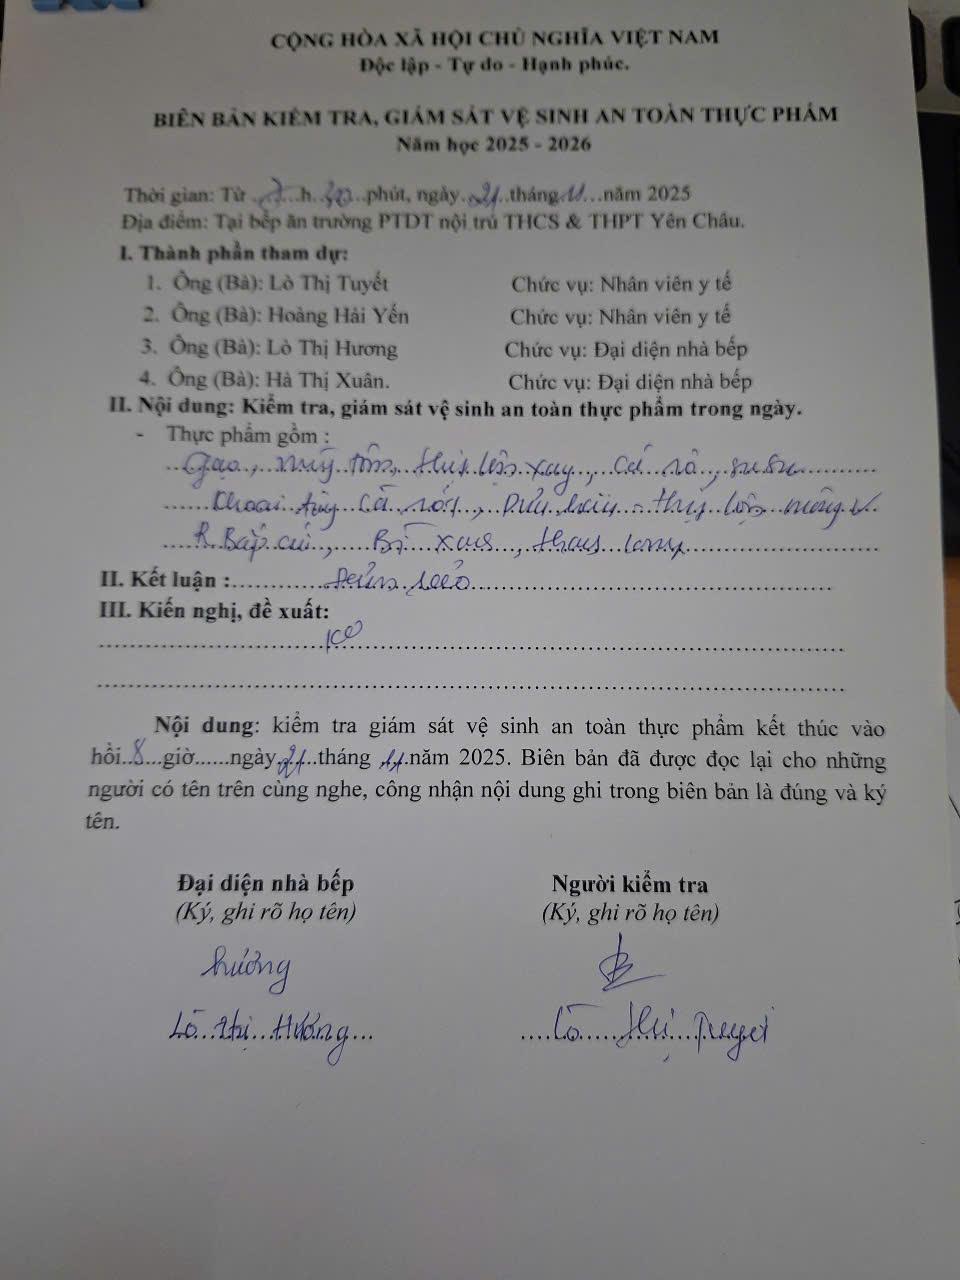 CỘNG HÒA XÃ HỘI CHỦ NGHĨA VIỆT NAM
Độc lập - Tự do - Hạnh phúc.
BIÊN BẢN KIỂM TRA, GIÁM SÁT VỆ SINH AN TOÀN THỰC PHẨM
Năm học 2025 - 2026
Thời gian: Từ 7 h 30 phút, ngày 21 tháng 11 năm 2025
Địa điểm: Tại bếp ăn trường PTDT nội trú THCS & THPT Yên Châu.
I. Thành phần tham dự:
1. Ông (Bà): Lò Thị Tuyết Chức vụ: Nhân viên y tế
2. Ông (Bà): Hoàng Hải Yến Chức vụ: Nhân viên y tế
3. Ông (Bà): Lò Thị Hương Chức vụ: Đại diện nhà bếp
4. Ông (Bà): Hà Thị Xuân. Chức vụ: Đại diện nhà bếp
II. Nội dung: Kiểm tra, giám sát vệ sinh an toàn thực phẩm trong ngày.
- Thực phẩm gồm :
Gạo, mỳ tôm, thịt lợn xay, cá rô, su su
Khoai tây cà rốt, thịt lợn
R Bắp cải, Bí xanh
II. Kết luận : Đảm bảo
III. Kiến nghị, đề xuất:
Ko
Nội dung: kiểm tra giám sát vệ sinh an toàn thực phẩm kết thúc vào
hồi 8 giờ......ngày 21 tháng 11 năm 2025. Biên bản đã được đọc lại cho những
người có tên trên cùng nghe, công nhận nội dung ghi trong biên bản là đúng và ký
tên.
Đại diện nhà bếp Người kiểm tra
(Ký, ghi rõ họ tên) (Ký, ghi rõ họ tên)
Hương
Lò Thị Hương Lò Thị Tuyết